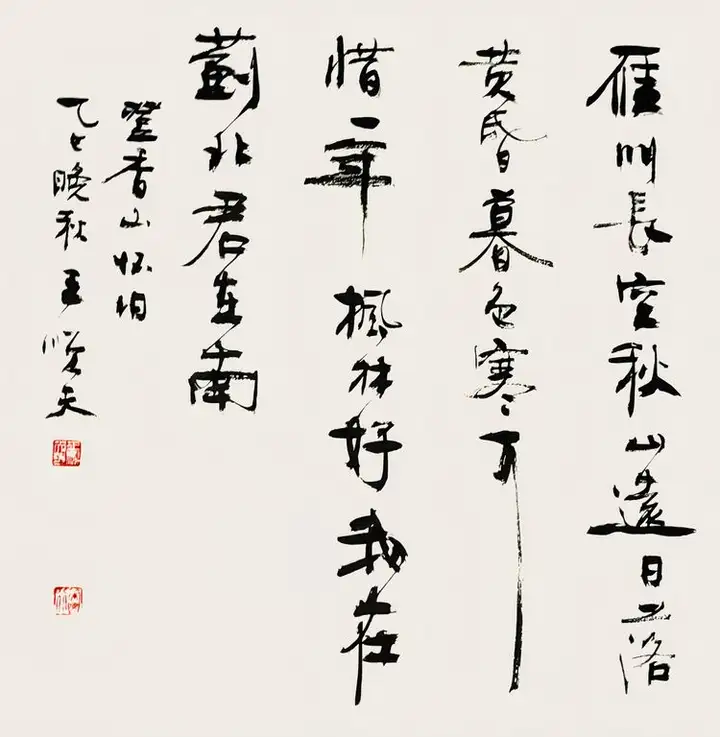 雁叫長空秋山遠日落
黄昏暮色寒可
惜一年楓林好我在
薊北君在南
登香山怀旧
乙巳晚秋王